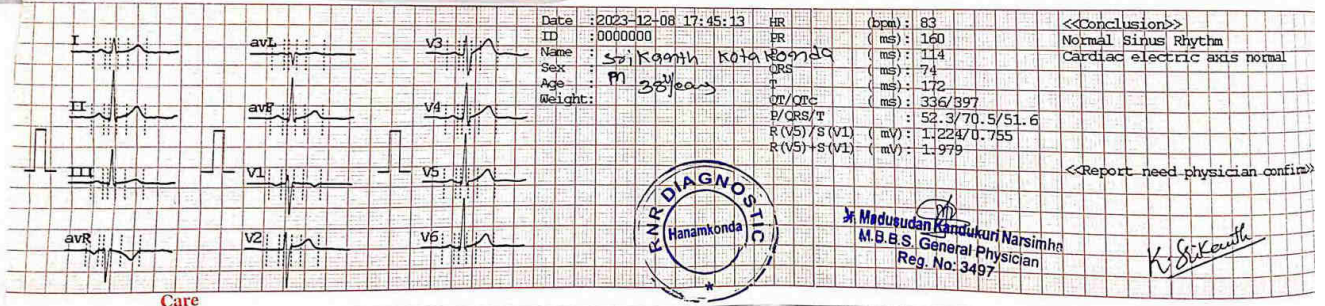 I
avL
V3
II
avF
V4
III
V1
V5
avR
V2
V6
Date :2023-12-08 17:45:13
ID :0000000
Name : Srikanth Kotakonda
Sex : M
Age : 38 years
Weight:
HR (bpm): 83
PR ( ms): 160
P ( ms): 114
QRS ( ms): 74
T ( ms): 172
QT/QTc ( ms): 336/397
P/QRS/T : 52.3/70.5/51.6
R(V5)/S(V1) ( mV): 1.224/0.755
R(V5)+S(V1) ( mV): 1.979
<<Conclusion>>
Normal Sinus Rhythm
Cardiac electric axis normal
<<Report need physician confirm>>
RNR DIAGNOSTIC
Hanamkonda
*
Madusudan Kandukuri Narsimha
M.B.B.S. General Physician
Reg. No: 3497
K. Srikanth
Care